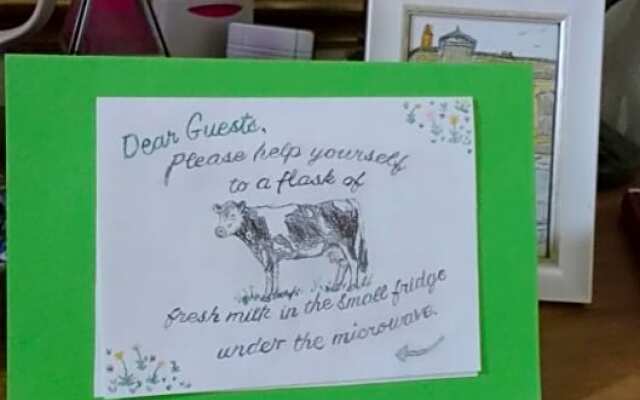 Dear Guests,
Please help yourself
to a flask of
fresh milk in the small fridge
under the microwave.